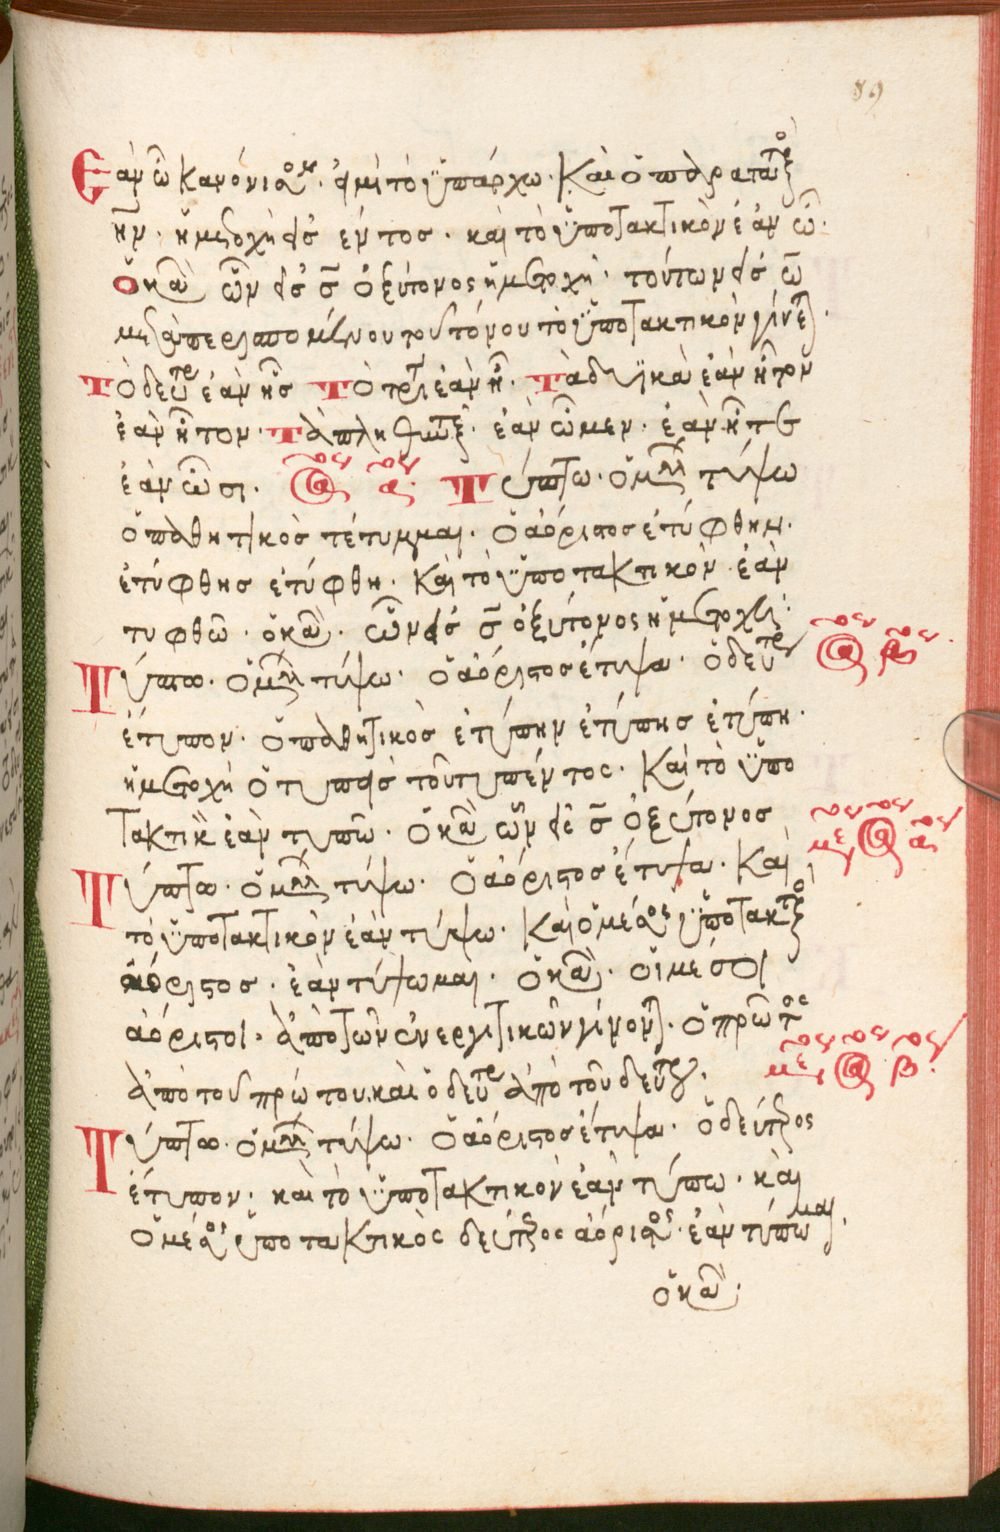 89
Ἐὰν ὦ κανόνισον. εἰμὶ τὸ ὑπάρχω. Καὶ ὁ παρατατικὸς
ἦν. ἡ μετοχὴ ὁ ὢν ὄντος. καὶ τὸ ὑποτακτικὸν ἐὰν ὦ.
ὁ κανὼν ὧν εἰς ς ὀξύτονος ἡ μετοχὴ. τούτων εἰς ω
μεταπεριστωμένου τοῦ τόνου τὸ ὑποτακτικὸν γίνεται.
Τὸ δεύτερον ἐὰν ᾖς Τὸ τρίτον ἐὰν ᾖ. Τὰ δυϊκὰ ἐὰν ἦτον
ἐὰν ἦτον. Τὰ πληθυντικὰ. ἐὰν ὦμεν. ἐὰν ἦτε
ἐὰν ὦσι. Τύπτω. ὁ μέλλων τύψω
ὁ παθητικὸς τέτυμμαι. Ὁ ἀόριστος ἐτύφθην.
ἐτύφθης ἐτύφθη. Καὶ τὸ ὑποτακτικὸν ἐὰν
τυφθῶ. ὁ κανὼν. ὧν εἰς ς ὀξύτονος ἡ μετοχὴ.
Τύπτω. Ὁ μέλλων τύψω. Ὁ ἀόριστος ἔτυψα. Ὁ δεύτερος
ἔτυπον. Ὁ παθητικὸς ἐτύπην ἐτύπης ἐτύπη.
ἡ μετοχὴ ὁ τυπεὶς τοῦ τυπέντος. Καὶ τὸ ὑπο
τακτικὸν ἐὰν τυπῶ. Ὁ κανὼν ὧν εἰς ς ὀξύτονος
Τύπτω. Ὁ μέλλων τύψω. Ὁ ἀόριστος ἔτυψα. Καὶ
τὸ ὑποτακτικὸν ἐὰν τύψω. Καὶ ὁ μέσος ὑποτακτικὸς
ἀόριστος. ἐὰν τύψωμαι. Ὁ κανὼν. Οἱ μέσοι
ἀόριστοι. ἀπὸ τῶν ἐνεργητικῶν γίνονται. Ὁ πρῶτος
ἀπὸ τοῦ πρώτου. καὶ ὁ δεύτερος ἀπὸ τοῦ δευτέρου.
Τύπτω. Ὁ μέλλων τύψω. Ὁ ἀόριστος ἔτυψα. Ὁ δεύτερος
ἔτυπον. καὶ τὸ ὑποτακτικὸν ἐὰν τύπω. καὶ
Ὁ μέσος ὑποτακτικὸς δεύτερος ἀόριστος. ἐὰν τύπωμαι.
ὁ κανὼν.